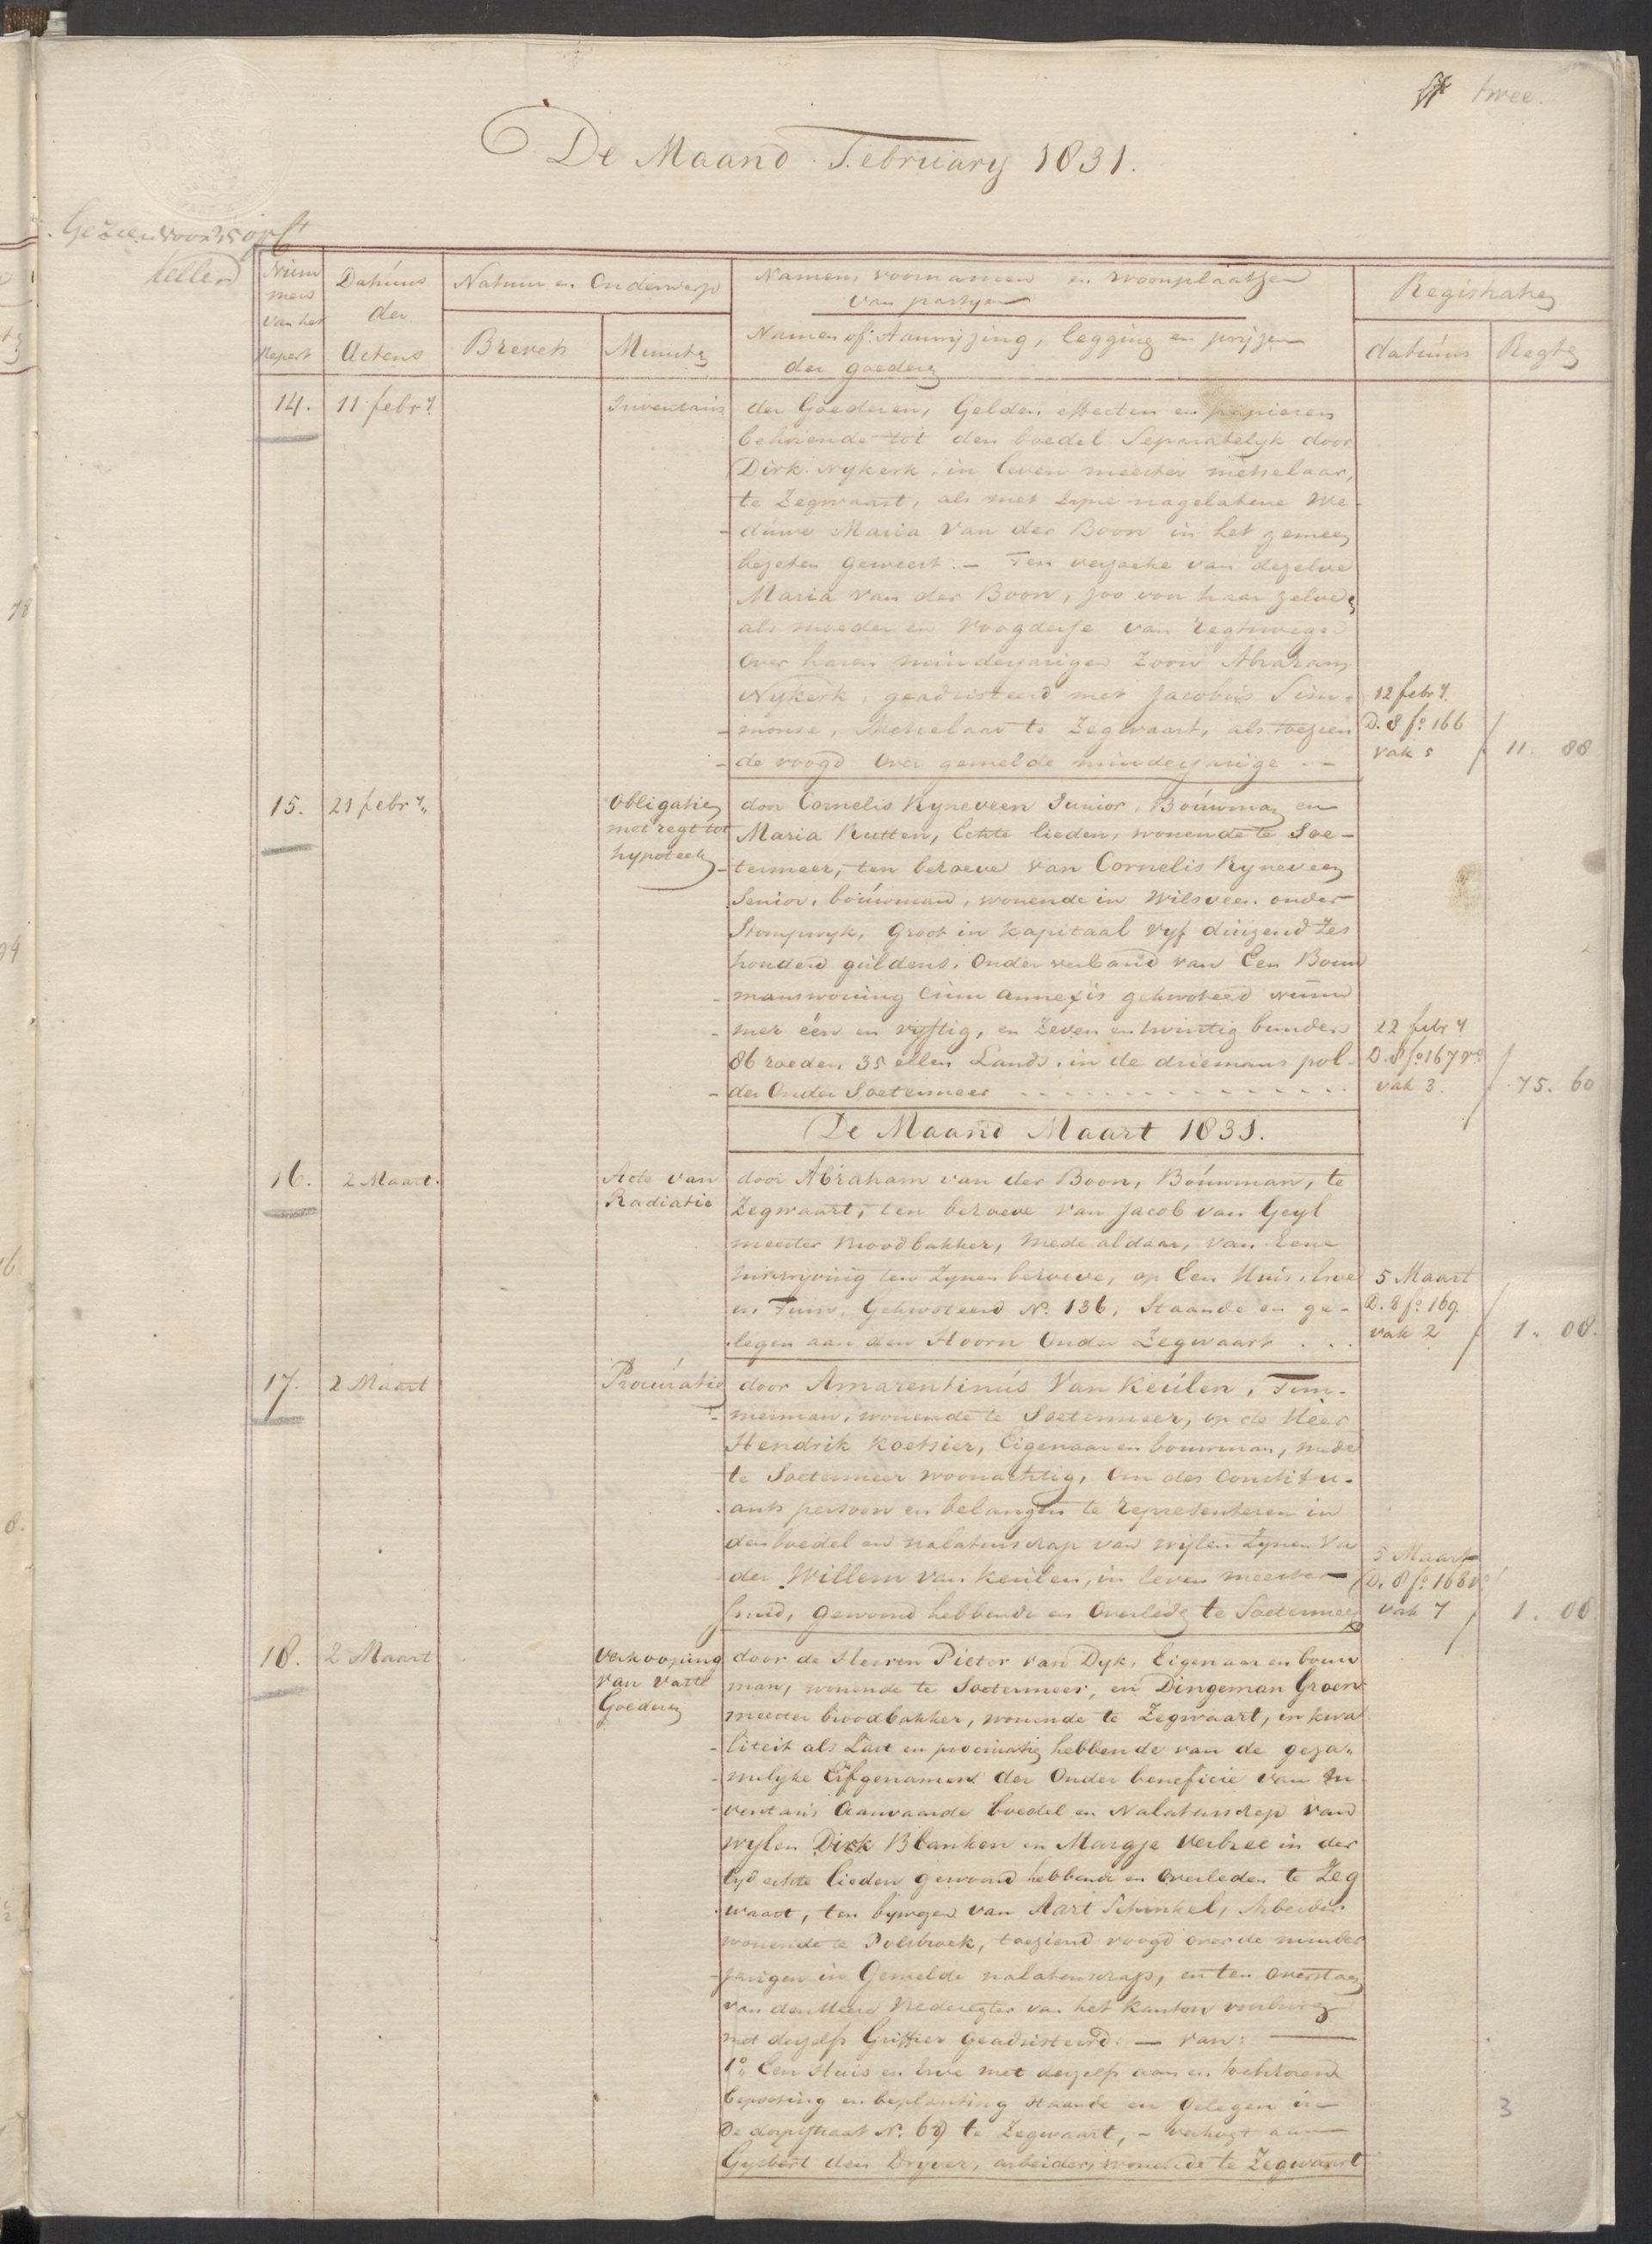 twee.
De Maand February 1831.
Gezien voor
tellen
Num
mers
van het
Repert
Datums
der
Actens
Natuur en Onderwerp
Brevets
Minuten
Namen, voornamen en woonplaatsen
van partyen
Namen of Aanwijzing, legging en prijzen
der goederen
Registratie
datums
Regten
14. 11 febry. Inventaris der Goederen, Gelden effecten en papieren
behorende tot den boedel Separatelyk door
Dirk Nykerk, in leven meester metselaar,
te Zegwaart, als met zyne nagelatene We-
duwe Maria Van der Boon in het gemeen
bezeten geweest. – Ten verzoeke van dezelve
Maria van der Boon, zoo voor haar zelven
als moeder en Voogdesse van regtswege
over haren minderjarigen Zoon Abraham
Nykerk, geadsisteerd met Jacobus Sim-
monse, Metselaar te Zegwaart, als toezien
de voogd over gemelde minderjarige
12 febry.
D. 8 fo. 166
vak 5
11. 88
15. 21 febry. Obligatie
met regt tot
hypoteek
door Cornelis Kyneveen Junior, Bouwman en
Maria Rutten, Echte lieden, wonende te Soe-
termeer, ten behoeve van Cornelis Kyneveen
Senior, bouwman, wonende in Wilsveen onder
Stompwyk, Groot in kapitaal vyf duizend Zes
honderd guldens, Onder verband van Een Bouw
manswoning cum annexis gekwoteerd num
mer één en vyftig, en Zeven en twintig bunders
86 roeden 35 ellen Lands, in de driemans pol-
der Onder Soetermeer
22 febry
D. 8 fo. 167 vo.
vak 3.
75. 60
De Maand Maart 1831.
16. 2 Maart. Acte van
Radiatie
door Abraham van der Boon, Bouwman, te
Zegwaart, ten behoeve van Jacob van Geyl
meester broodbakker, Mede aldaar, van Eene
inschryving ten zynen behoeve, op Een Huis, Erve
en Tuin, Gekwoteerd No. 136, Staande en ge-
legen aan den Hoorn Onder Zegwaart
5 Maart
D. 8 fo. 169.
vak 2
1. 08.
17. 2 Maart Procuratie door Amarentinus Van Keulen, Tim-
merman, wonende te Soetermeer, op de Heer
Hendrik Koetsier, Eigenaar en bouwman, mede
te Soetermeer woonachtig, Om des Constitu-
ants persoon en belangen te representeren in
den boedel en nalatenschap van wylen Zynen Va
der Willem van Keulen, in leven meester
smid, gewoond hebbende en Overleden te Soetermeer
5 Maart
D. 8 fo. 168 vo.
vak 7
1. 08
18. 2 Maart Verkooping
van vaste
Goederen
door de Heeren Pieter van Dyk, Eigenaar en bouw
man, wonende te Soetermeer, en Dingeman Groen
meester broodbakker, wonende te Zegwaart, in kwa
liteit als Last en procuratie hebbende van de geza-
mentlyke Erfgenamen der Onder beneficie van In
ventaris Aanvaarde boedel en Nalatenschap van
wylen Dirk Blanken en Margje Verbree in der
tyd echte lieden gewoond hebbende en Overleden te Zeg
waart, ten bywezen van Aart Schinkel, Arbeider
wonende te Polsbroek, toeziend voogd over de minder
jarigen in Gemelde nalatenschap, en ten Overstaan
van den Heer Vrederegter van het Kanton voorburg
met deszelfs Griffier Geadsisteerd: – van:
1o. Een Huis en Erve met deszelfs aan en toebehoren
bepoting en beplanting staande en Gelegen in
De dorpstraat No. 69 te Zegwaart, – verkogt aan
Gysbert den Dryver, arbeider, wonende te Zegwaart
3